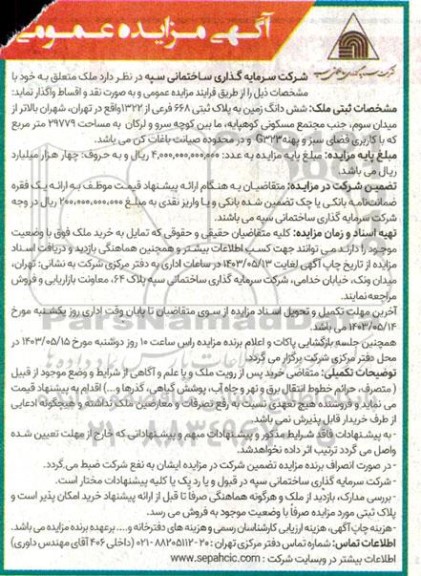 آگهی مزایده عمومی
شرکت سرمایه گذاری ساختمانی سپه
شرکت سرمایه گذاری ساختمانی سپه در نظر دارد ملک متعلق به خود با
مشخصات ذیل را از طریق فرایند مزایده عمومی و به صورت نقد و اقساط واگذار نماید:
مشخصات ثبتی ملک: شش دانگ زمین به پلاک ثبتی ۶۶۸ فرعی از ۱۳۲۲ واقع در تهران، شهران بالاتر از
میدان سوم، جنب مجتمع مسکونی کوهپایه، ما بین کوچه سرو و لرکان به مساحت ۲۹۷۷۹ متر مربع
که با کاربری فضای سبز و پهنه G۳۲۳ و در محدوده صیانت باغات کن می باشد.
مبلغ پایه مزایده: مبلغ پایه مزایده به عدد: ۴,۰۰۰,۰۰۰,۰۰۰,۰۰۰ ریال و به حروف: چهار هزار میلیارد
ریال می باشد.
تضمین شرکت در مزایده: متقاضیان به هنگام ارائه پیشنهاد قیمت موظف به ارائه یک فقره
ضمانت‌نامه بانکی یا چک تضمین شده بانکی و یا واریز نقدی به مبلغ ۲۰۰,۰۰۰,۰۰۰,۰۰۰ ریال در وجه
شرکت سرمایه گذاری ساختمانی سپه می باشند.
تهیه اسناد و زمان مزایده: کلیه متقاضیان حقیقی و حقوقی که تمایل به خرید ملک فوق با وضعیت
موجود را دارند می توانند جهت کسب اطلاعات بیشتر و همچنین هماهنگی بازدید و دریافت اسناد
مزایده از تاریخ چاپ آگهی لغایت ۱۴۰۳/۰۵/۱۳ در ساعات اداری به دفتر مرکزی شرکت به نشانی: تهران،
میدان ونک، خیابان خدامی، شرکت سرمایه گذاری ساختمانی سپه پلاک ۶۴، معاونت بازاریابی و فروش
مراجعه نمایند.
آخرین مهلت تکمیل و تحویل اسناد مزایده از سوی متقاضیان تا پایان وقت اداری روز یکشنبه مورخ
۱۴۰۳/۰۵/۱۴ می باشد.
همچنین جلسه بازگشایی پاکات و اعلام برنده مزایده راس ساعت ۱۰ روز دوشنبه مورخ ۱۴۰۳/۰۵/۱۵ در
محل دفتر مرکزی شرکت برگزار می گردد.
توضیحات تکمیلی: متقاضی خرید پس از رویت ملک و با علم و آگاهی از شرایط و وضع موجود از قبیل
(متصرف، حرائم خطوط انتقال برق و نهر و چاه آب، پوشش گیاهی، گذرها و...) اقدام به پیشنهاد قیمت
می نماید و فروشنده هیچ تعهدی نسبت به رفع تصرفات و معارضین ملک نداشته و هیچگونه ادعایی
از طرف خریدار قابل پذیرش نمی باشد.
- به پیشنهادات فاقد شرایط مذکور و پیشنهادات مبهم و پیشنهاداتی که خارج از مهلت تعیین شده
واصل می گردد ترتیب اثر داده نخواهد شد.
- در صورت انصراف برنده مزایده تضمین شرکت در مزایده ایشان به نفع شرکت ضبط می گردد.
- شرکت سرمایه گذاری ساختمانی سپه در قبول و یا رد یک یا کلیه پیشنهادات مختار است.
- بررسی مدارک، بازدید از ملک و هرگونه هماهنگی صرفاً تا قبل از ارائه پیشنهاد خرید امکان پذیر است و
پلاک ثبتی مورد مزایده صرفاً با وضعیت موجود به فروش می رسد.
- هزینه چاپ آگهی، هزینه ارزیابی کارشناسان رسمی و هزینه های دفترخانه و.... برعهده برنده مزایده می باشد.
اطلاعات تماس: شماره تماس دفتر مرکزی تهران: ۲۰-۸۸۲۰۵۱۱۲-۰۲۱ (داخلی ۴۰۶ آقای مهندس داوری)
اطلاعات بیشتر در وبسایت شرکت: www.sepahcic.com
ParsNamadData
۰۲۱-۸۸۳۴۹۶۷۰-۵